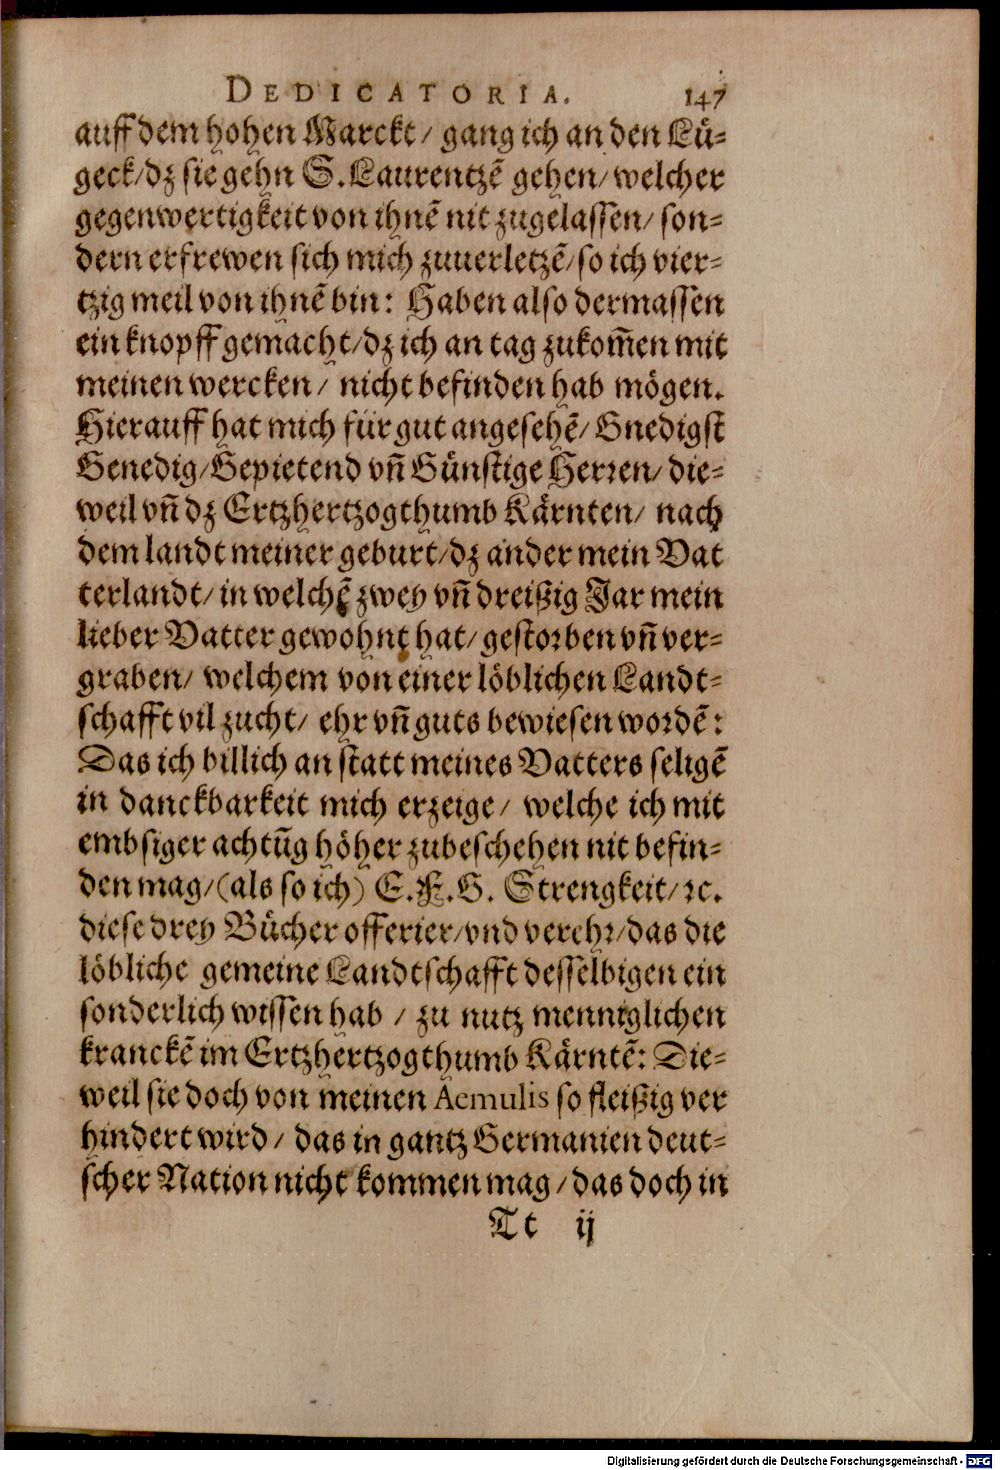 DEDICATORIA. 147
auff dem hohen Marckt/ gang ich an den Lü-
geck/dz sie gehn S. Laurentzē gehen/ welcher
gegenwertigkeit von ihnē nit zugelassen/ son-
dern erfrewen sich mich zuuerletzē/ so ich vier-
tzig meil von ihnē bin: Haben also dermassen
ein knopff gemacht/dz ich an tag zukom̄en mit
meinen wercken/ nicht befinden hab mögen.
Hierauff hat mich für gut angesehē/ Gnedigst
Genedig/Gepietend vn̄ Günstige Herren/ die-
weil vn̄ dz Ertzhertzogthumb Kärnten/ nach
dem landt meiner geburt/dz ander mein Vat
terlandt/ in welchē zwey vn̄ dreißig Jar mein
lieber Vatter gewohnt hat/ gestorben vn̄ ver-
graben/ welchem von einer löblichen Landt-
schafft vil zucht/ ehr vn̄ guts bewiesen wordē:
Das ich billich an statt meines Vatters seligē
in danckbarkeit mich erzeige/ welche ich mit
embsiger achtūg höher zubeschehen nit befin-
den mag/(als so ich) E.F.G. Strengkeit/ꝛc.
diese drey Bücher offerier/vnd verehr/das die
löbliche gemeine Landtschafft desselbigen ein
sonderlich wissen hab / zu nutz menniglichen
kranckē im Ertzhertzogthumb Kärntē: Die-
weil sie doch von meinen Aemulis so fleißig ver
hindert wird/ das in gantz Germanien deut-
scher Nation nicht kommen mag/das doch in
Tt ij
Digitalisierung gefördert durch die Deutsche Forschungsgemeinschaft - DFG